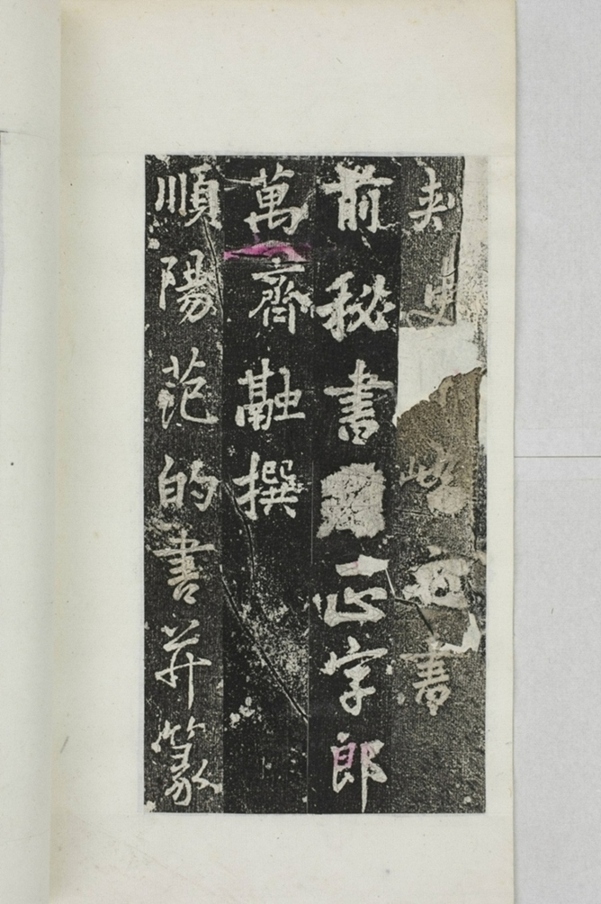 史 書
前秘書 正字郎
萬齊融撰
順陽范的書并篆